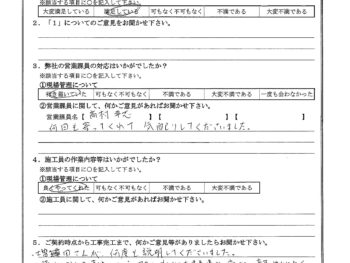 ※該当する項目に○を記入して下さい。
大変満足している 満足している 可もなく不可もなく 不満である 大変不満である
2．「1」についてのご意見をお聞かせ下さい。
3．弊社の営業課員の対応はいかがでしたか？
※該当する項目に○を記入して下さい。
①現場管理について
行き届いていた 可もなく不可もなく 不満である 大変不満である 一度も会わなかった
②営業課員に関して、何かご意見があればお聞かせ下さい。
営業課員名【 】【 】【 】
何回も来てくれて 気配りしてくださいました。
4．施工員の作業内容等はいかがでしたか？
※該当する項目に○を記入して下さい。
①現場管理について
良くやってくれた 可もなく不可もなく 不満である 大変不満である
②施工員に関して、何かご意見があればお聞かせ下さい。
5．ご契約時点から工事完工まで、何かご意見等がありましたらお聞かせ下さい。
さんが 何度も説明してくださいました。